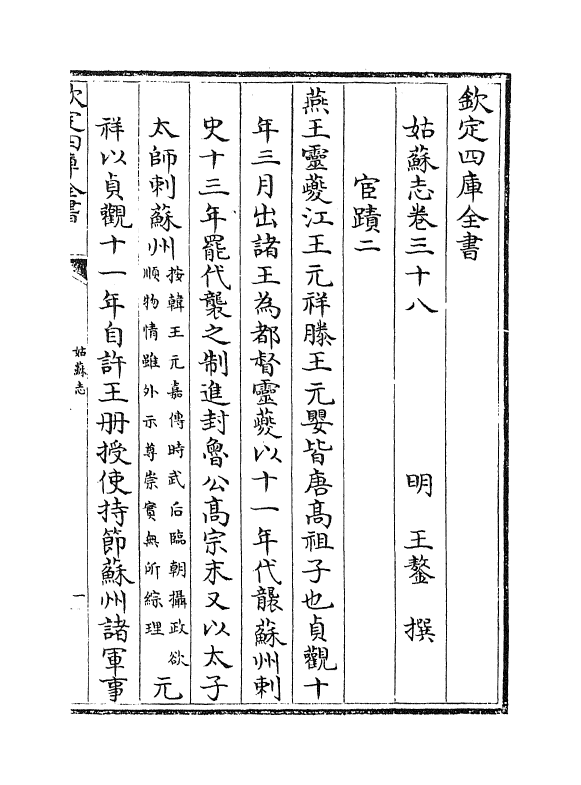 欽定四庫全書
姑蘇志卷三十八
明 王鏊 撰
宦蹟二
燕王靈夔江王元祥滕王元嬰皆唐髙祖子也貞觀十
年三月出諸王為都督靈夔以十一年代襲蘇州刺
史十三年罷代襲之制進封魯公髙宗末又以太子
太師刺蘇州按韓王元嘉傳時武后臨朝攝政欲順物情雖外示尊崇實無所綜理元
祥以貞觀十一年自許王册授使持節蘇州諸軍事
欽定四庫全書
姑蘇志
一